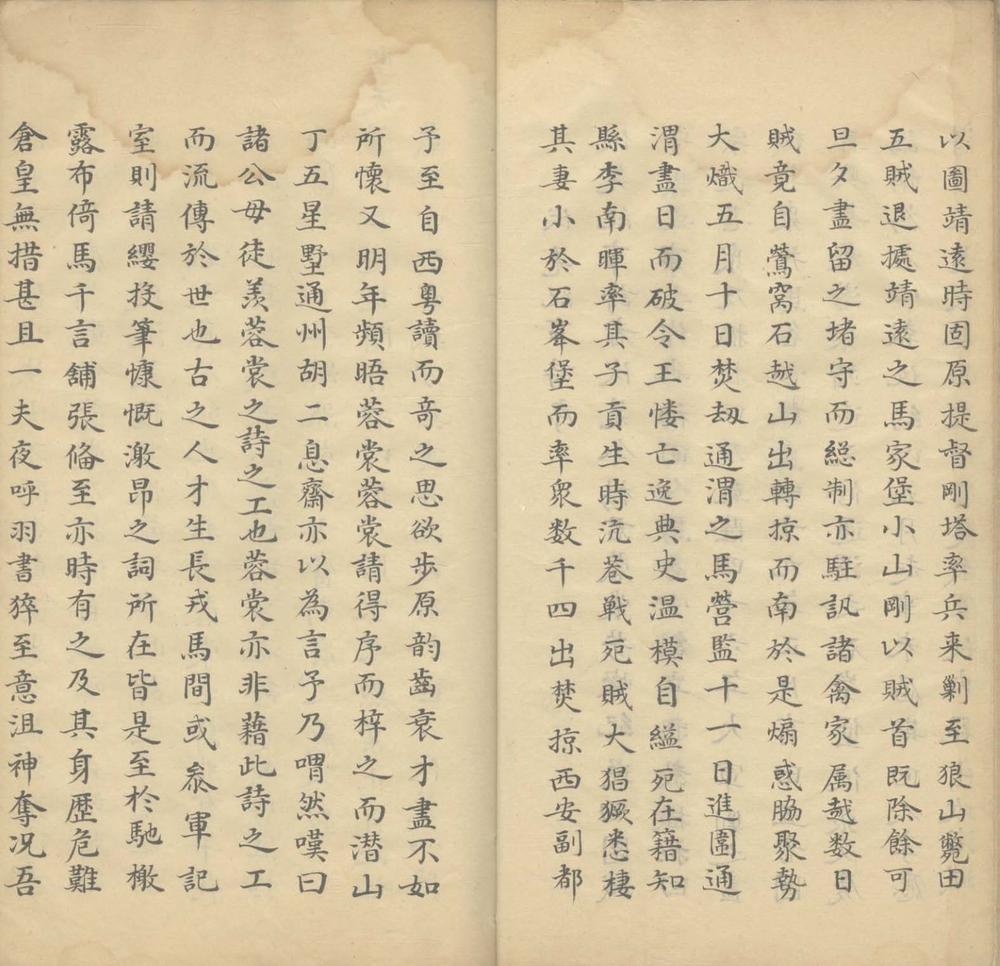 以圖靖遠時固原提督剛塔率兵来剿至狼山斃田
五賊退據靖遠之馬家堡小山剛以賊首既除餘可
旦夕盡留之堵守而総制亦駐訊諸禽家属越数日
賊竟自鶯窩石越山出轉掠而南於是煽惑脇聚勢
大熾五月十日焚刼通渭之馬營監十一日進圍通
渭盡日而破令王慺亡逸典史温模自縊死在籍知
縣李南暉率其子貢生時沆巷戦死賊大猖獗悉棲
其妻小於石峯堡而率衆数千四出焚掠西安副都
予至自西粤讀而竒之思欲歩原韵齒衰才盡不如
所懷又明年頻晤蓉裳蓉裳請得序而梓之而潜山
丁五星墅通州胡二息齋亦以為言予乃喟然嘆曰
諸公毋徒羨蓉裳之詩之工也蓉裳亦非藉此詩之工
而流傳於世也古之人才生長戎馬間或叅軍記
室則請纓投筆慷慨激昂之詞所在皆是至於馳檄
露布倚馬千言舖張俻至亦時有之及其身歷危難
倉皇無措甚且一夫夜呼羽書猝至意沮神奪况吾